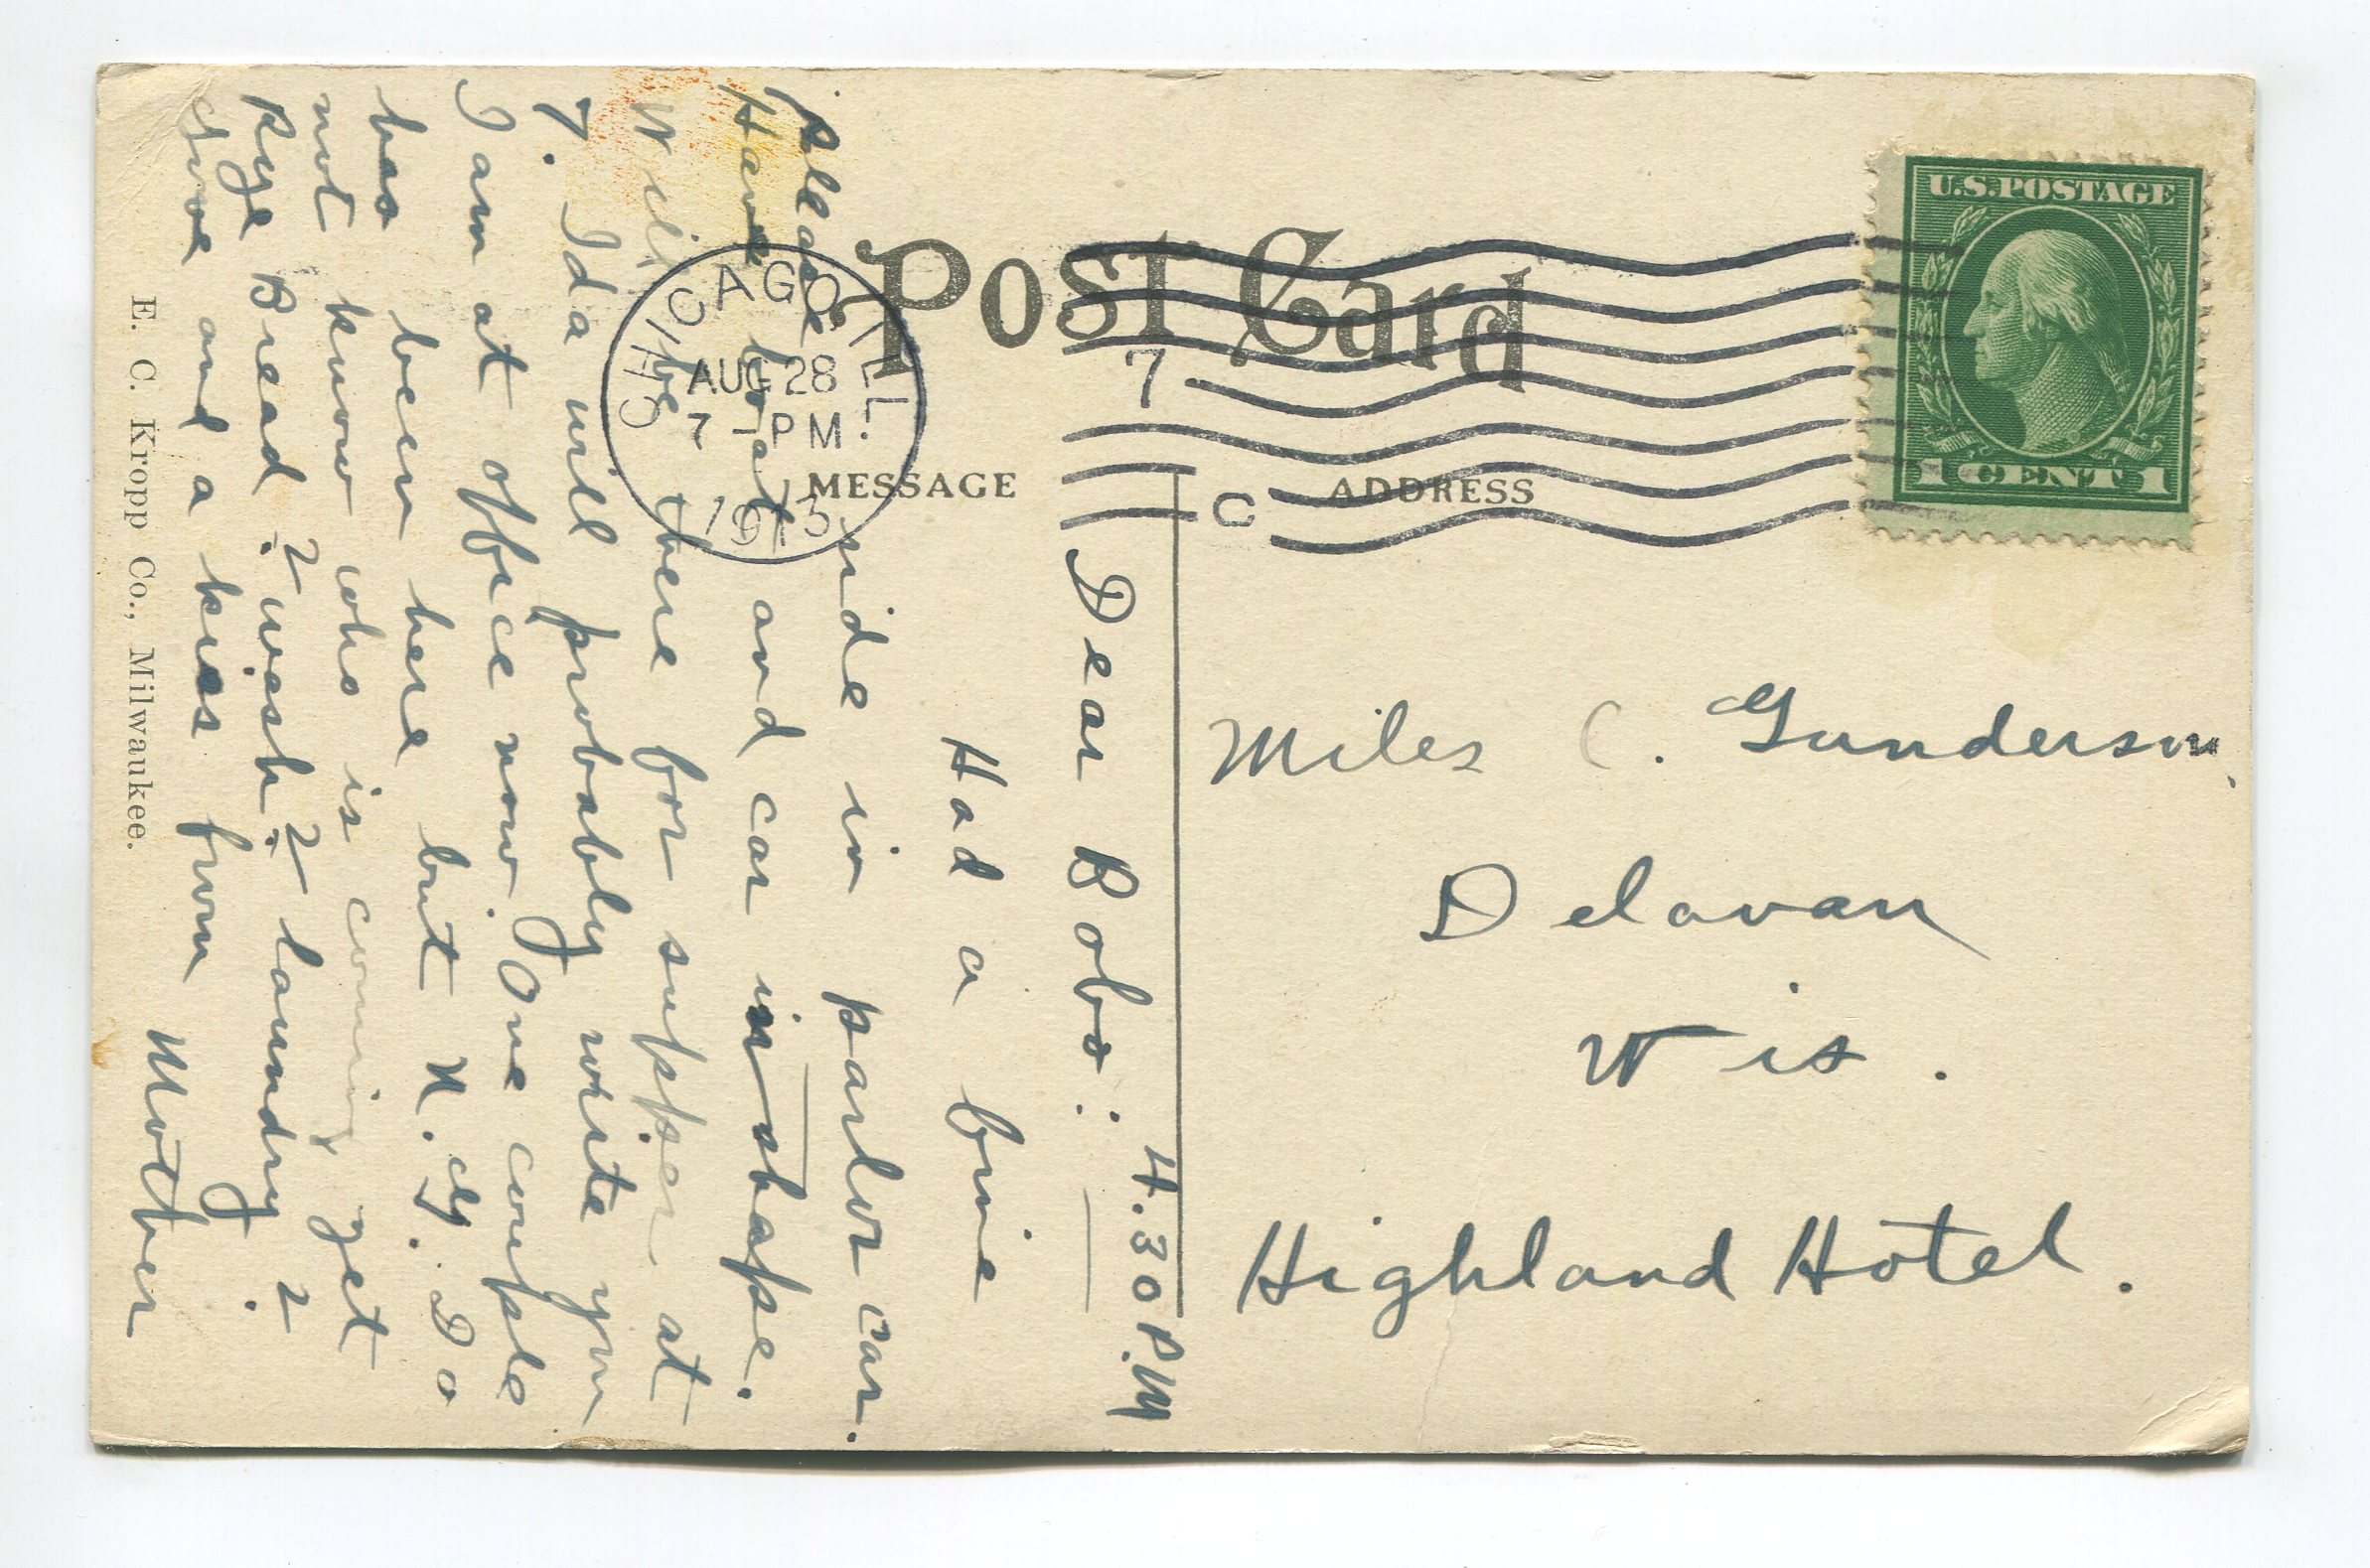 Post Card
MESSAGE
ADDRESS
U.S. POSTAGE
1 CENT 1
CHICAGO, ILL.
AUG 28
7 - PM
1915
7
C
Miles C. Gunderson.
Delavan
Wis.
Highland Hotel.
4.30 P.M
Dear Bobo:
Had a fine
ride in parlor car.
Please
Have boat and car in shape.
Will be there for supper at
7. Ida will probably write you
I am at office now. One couple
has been here but N. G. Do
not know who is coming yet
Rye Bread? wash? laundry?
Love and a kiss from
Mother
E. C. Kropp Co., Milwaukee.